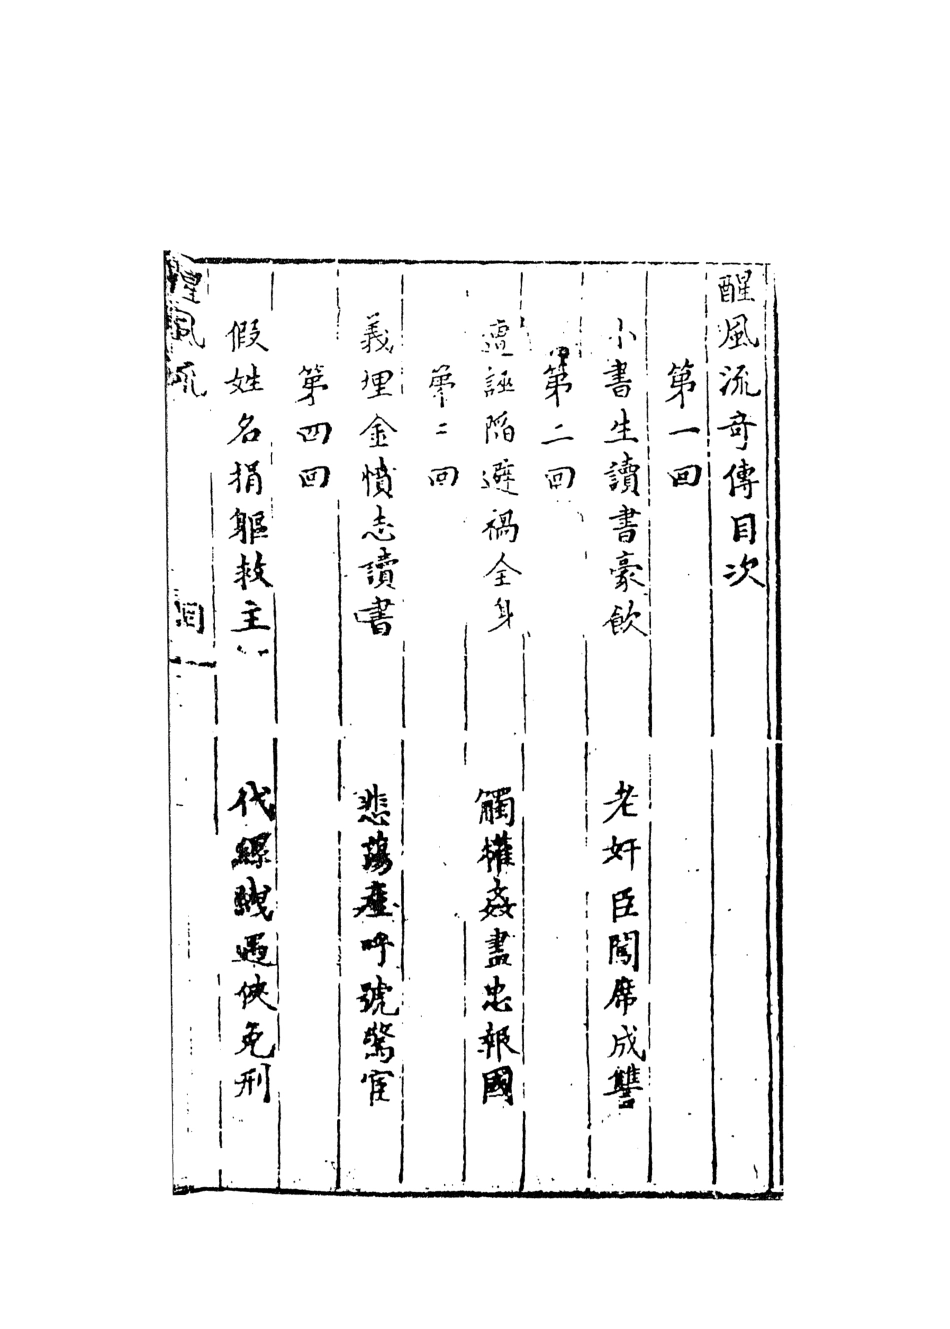 醒風流奇傳目次
第一回
小書生讀書豪飲　老奸臣闖席成讐
第二回
遭誣陷避禍全身　觸權姦盡忠報國
第三回
義埋金憤志讀書　悲蕩產呼號驚宦
第四回
假姓名捐軀救主　代縲絏遇俠免刑
醒風流
囬
一